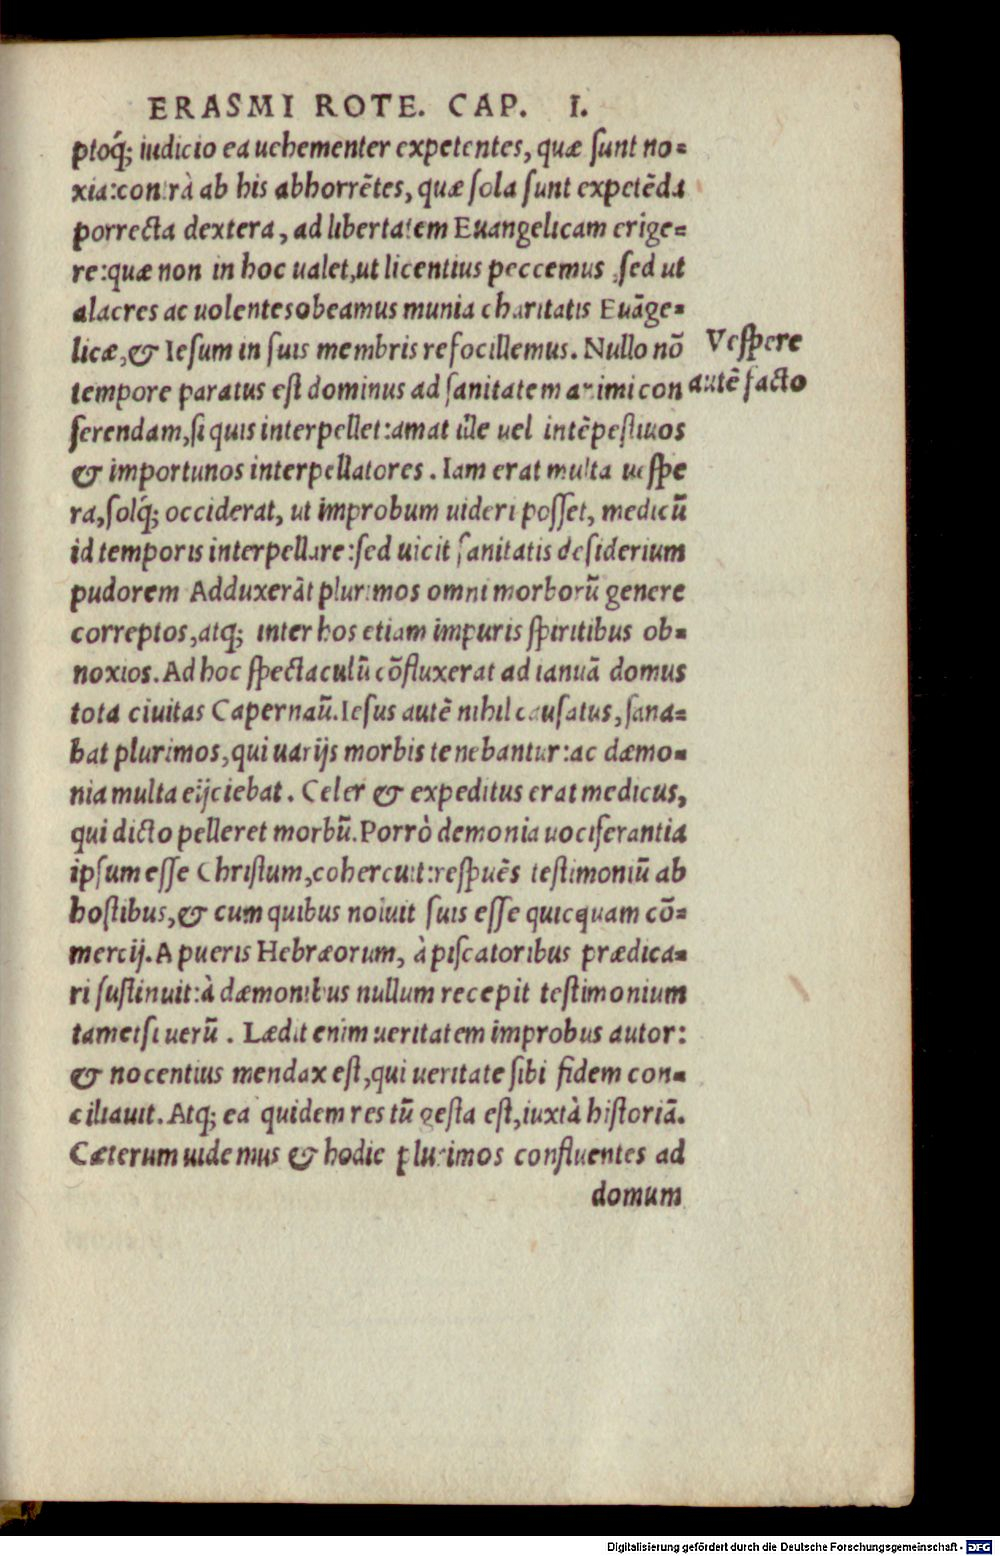 ERASMI ROTE. CAP. I.
ptoq́; iudicio ea uehementer expetentes, quæ sunt no=
xia: contrà ab his abhorrētes, quæ sola sunt expetēda
porrecta dextera, ad libertatem Euangelicam erige=
re: quæ non in hoc ualet, ut licentius peccemus, sed ut
alacres ac uolentes obeamus munia charitatis Euāge=
licæ, & Iesum in suis membris refocillemus. Nullo nō
Vespere
tempore paratus est dominus ad sanitatem animi con
autē facto
ferendam, si quis interpellet: amat ille uel intēpestiuos
& importunos interpellatores. Iam erat multa uespe
ra, solq́; occiderat, ut improbum uideri posset, medicū
id temporis interpellare: sed uicit sanitatis desiderium
pudorem Adduxerāt plurimos omni morborū genere
correptos, atq; inter hos etiam impuris spiritibus ob=
noxios. Ad hoc spectaculū cōfluxerat ad ianuā domus
tota ciuitas Capernaū. Iesus autē nihil causatus, sana=
bat plurimos, qui uarijs morbis tenebantur: ac dæmo=
nia multa eijciebat. Celer & expeditus erat medicus,
qui dicto pelleret morbū. Porrò demonia uociferantia
ipsum esse Christum, cohercuit: respuēs testimoniū ab
hostibus, & cum quibus noluit suis esse quicquam cō=
mercij. A pueris Hebræorum, à piscatoribus prædica=
ri sustinuit: à dæmonibus nullum recepit testimonium
tametsi uerū. Lædit enim ueritatem improbus autor:
& nocentius mendax est, qui ueritate sibi fidem con=
ciliauit. Atq; ea quidem res tū gesta est, iuxtà historiā.
Cæterum uidemus & hodie plurimos confluentes ad
domum
Digitalisierung gefördert durch die Deutsche Forschungsgemeinschaft - DFG